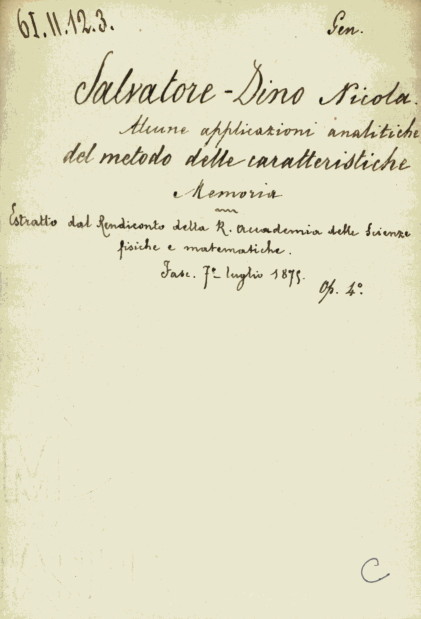 61.II.12.3.
Gen.
Salvatore-Dino Nicola.
Alcune applicazioni analitiche
del metodo delle caratteristiche
Memoria
Estratto dal Rendiconto della R. Accademia delle Scienze
fisiche e matematiche.
Fasc. 7º luglio 1875.
Op. 4º.
C